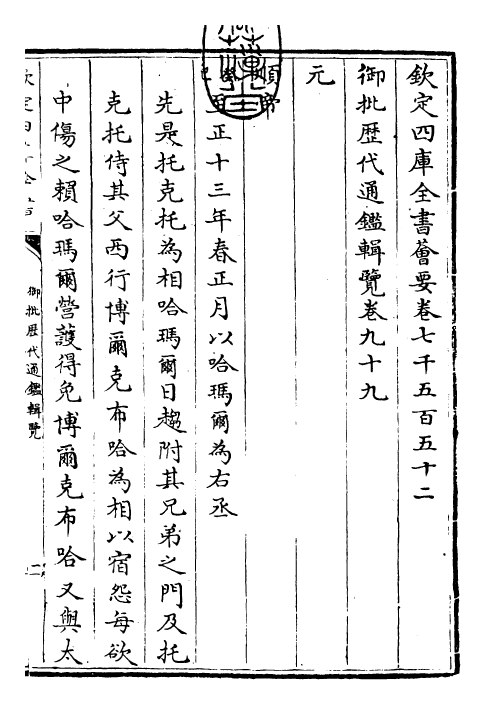 欽定四庫全書薈要卷七千五百五十二
御批歷代通鑑輯覽卷九十九
元
順帝
正十三年春正月以哈瑪爾為右丞
先是托克托為相哈瑪爾日趨附其兄弟之門及托
克托侍其父西行博爾克布哈為相以宿怨每欲
中傷之賴哈瑪爾營護得免博爾克布哈又與太
御批歷代通鑑輯覽